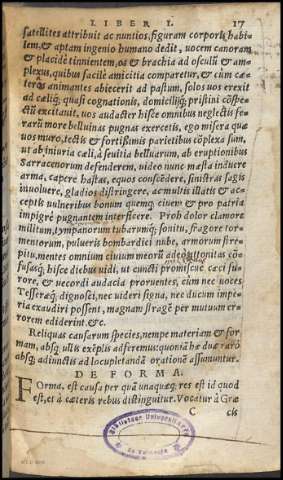 LIBER I. 17
satellites attribuit ac nuntios, figuram corporis habi-
lem, & aptam ingenio humano dedit, uocem canoram
& placidè tinnientem, os & brachia ad osculū & am-
plexus, quibus facilè amicitia comparetur, & cùm cæ-
teros animantes abiecerit ad pastum, solos uos erexit
ad cæliq́; quasi cognationis, domiciliiq́; pristini cōspe-
ctū excitauit, uos audacter hisce omnibus neglectis fe-
rarū more belluinas pugnas exercetis, ego misera quæ
uos muro, tectis & fortissimis parietibus cōplexa sum,
ut ab iniuria cæli, à seuitia belluarum, ab eruptionibus
Sarracenorum defenderem, uideo nunc masta induere
arma, capere hastas, equos conscēdere, sinistras sagis
inuoluere, gladios distringere, ac multis illatis & ac-
ceptis uulneribus bonum quemq́; ciuem & pro patria
impigrè pugnantem interficere. Proh dolor clamore
militum, tympanorum tubarumq́; sonitu, fragore tor-
mentorum, pulueris bombardici nube, armorum stre-
pitu, mentes omnium ciuium meorū adeò attonitas cō-
fusasq́; hisce diebus uidi, ut cuncti promiscuè cæci fu-
rore, & uecordi audacia proruentes, cùm nec uoces
Tesseræq́; dignosci, nec uideri signa, nec ducum impe-
ria exaudiri possent, magnam stragē per mutuum er-
rorem ediderint. &c.
Reliquas causarum species, nempe materiam & for-
mam, absq́; ullis exēplis adferemus: quoniā hæ duæ rarò
absq́; adiunctis ad locupletandā orationē assumuntur.
DE FORMA.
Forma, est causa per quā unaquæq́; res est id quod
est, & à cæteris rebus distinguitur. Vocatur à Græ
C cis
Biblioteca Universitaria
de Valencia